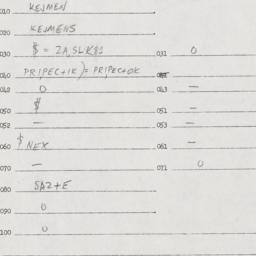 010 KEJMEN
020 KEJMENS
030 $ = ZA,SLKS1 031 0
040 PRIPEC+IK)= PRIPEC+OK
042 0 043 —
050 $ 051 —
052 — 053 —
060 $ NEX 061 —
070 — 071 0
080 SAZ+E
090 0
100 0